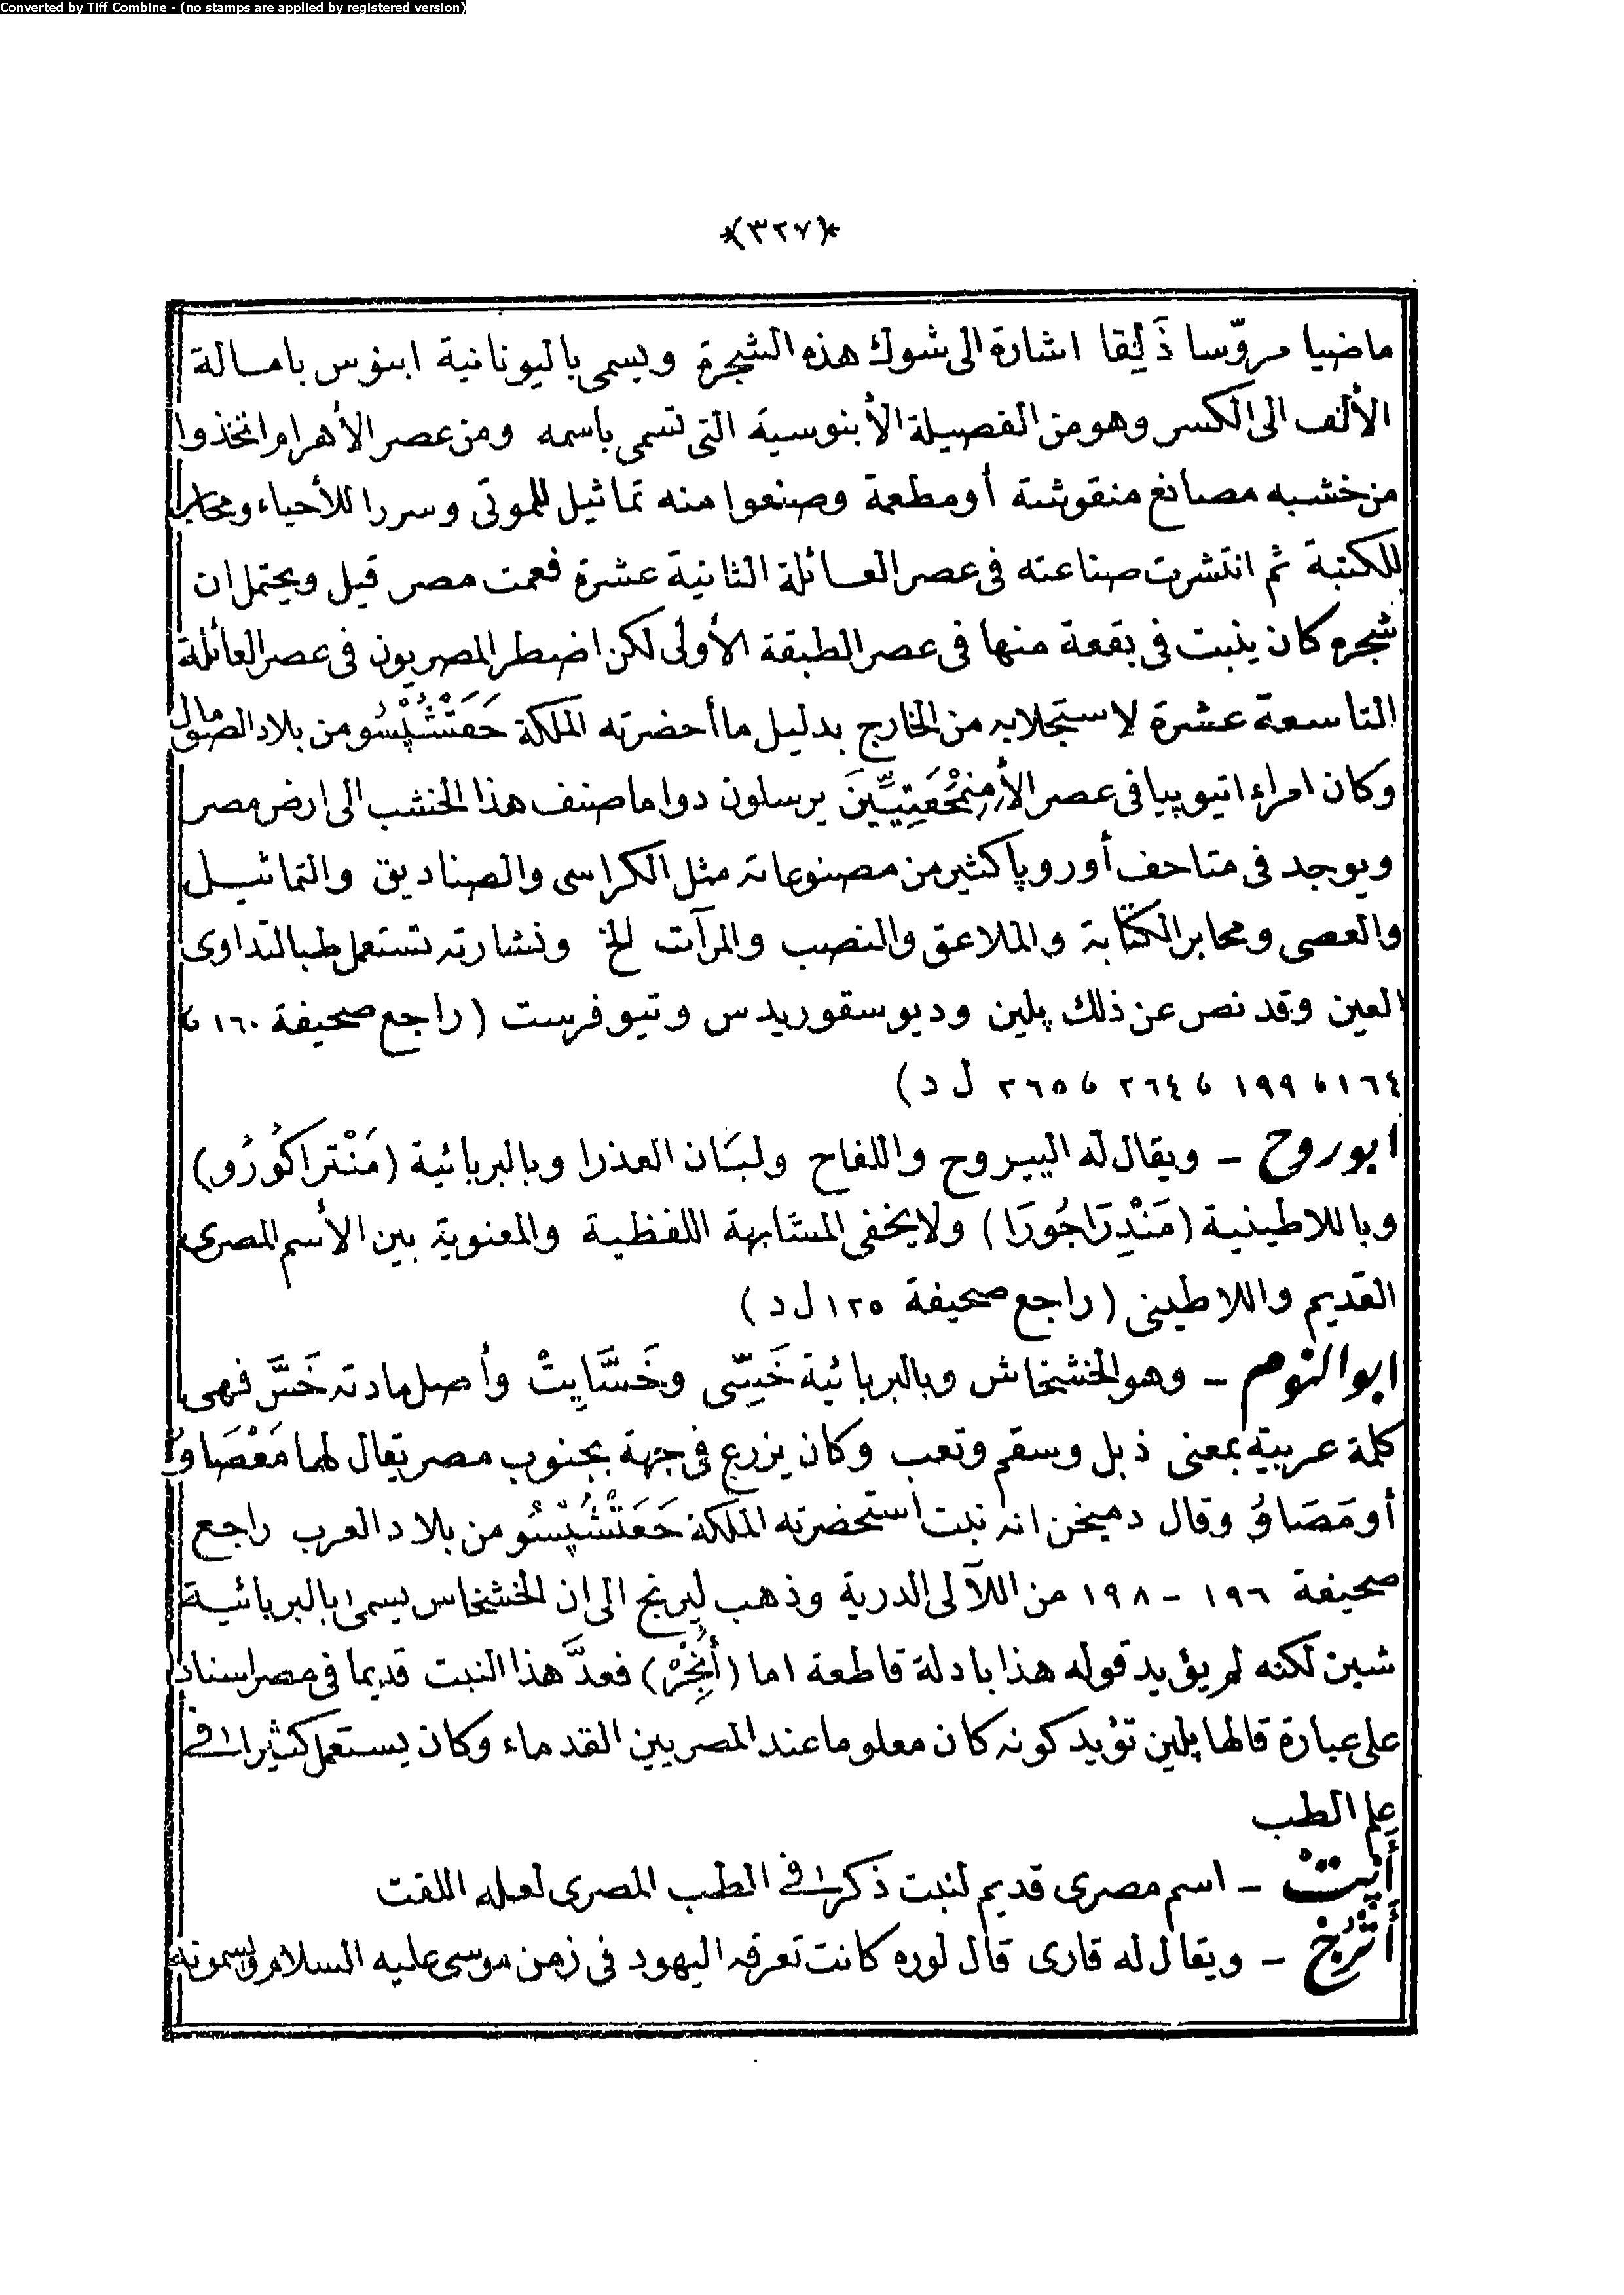 Converted by Tiff Combine - (no stamps are applied by registered version)
*(٣٢٧)*
ماضيا مروّسا ذَلِقا اشارة الى شوك هذه الشجرة ويسمى باليونانية ابنوس بامالة
الألف الى الكسر وهو من الفصيلة الأبنوسية التى تسمى باسمه ومن عصر الأهرام اتخذوا
من خشبه مصانع منقوشة أو مطعمة وصنعوا منه تماثيل للموتى وسررا للأحياء ومحابر
للكتبة ثم انتشرت صناعته فى عصر العائلة الثانية عشرة فعمت مصر قيل ويحتمل ان
شجره كان ينبت فى بقعة منها فى عصر الطبقة الأولى لكن اضطر المصريون فى عصر العائلة
التاسعة عشرة لاستجلابه من الخارج بدليل ما أحضرته الملكة حَعَتْشُپْسُو من بلاد الصومال
وكان امراء اتيوپيا فى عصر الأَمِنْمْحَعِتِيِّينَ يرسلون دواما صنف هذا الخشب الى ارض مصر
ويوجد فى متاحف أوروپا كثير من مصنوعاته مثل الكراسى والصناديق والتماثيل
والعصى ومحابر الكتابة والملاعق والنصب والمرآت الخ ونشارته تستعمل طبا لتداوى
العين وقد نص عن ذلك پلين وديوسقوريدس وتيوفرست (راجع صحيفة ١٦٠ ،
١٦٤ ، ١٩٩ ، ٢٦٤ ، ٢٦٥ ل د)
ابوروح - ويقال له اليبروح واللفاح ولبَان العذرا وبالبربائية (مَنْتراكُورُو)
وباللاطينية (مَنْدِرَاجُورَا) ولا يخفى المشابهة اللفظية والمعنوية بين الأسم المصرى
القديم واللاطينى (راجع صحيفة ١٢٥ ل د)
ابوالنوم - وهو الخشخاش وبالبربائية خَسِّى وخَسَّايِتْ وأصل مادته خَسَّ فهى
كلمة عربية بمعنى ذبل وسقم وتعب وكان يزرع فى جهة بجنوب مصر يقال لها مَعْصَاوُ
أو مَصَاوُ وقال دميخن انه نبت استحضرته الملكة حَعَتْشُپْسُو من بلاد العرب راجع
صحيفة ١٩٦ - ١٩٨ من اللآلى الدرية وذهب ليرنج الى ان الخشخاس يسمى بالبربائية
شين لكنه لم يؤيد قوله هذا بادلة قاطعة اما (أُنْجِرْ) فعدَّ هذا النبت قديما فى مصر اسنادا
على عبارة قالها پلين تؤيد كونه كان معلوما عند المصريين القدماء وكان يستعمل كثيرا فى
علم الطب
أَپِتْ - اسم مصرى قديم لنبت ذكر فى الطب المصرى لعله اللفت
أُتْرُجّ - ويقال له قارى قال لوره كانت تعرفه اليهود فى زمن موسى عليه السلام ويسمونه